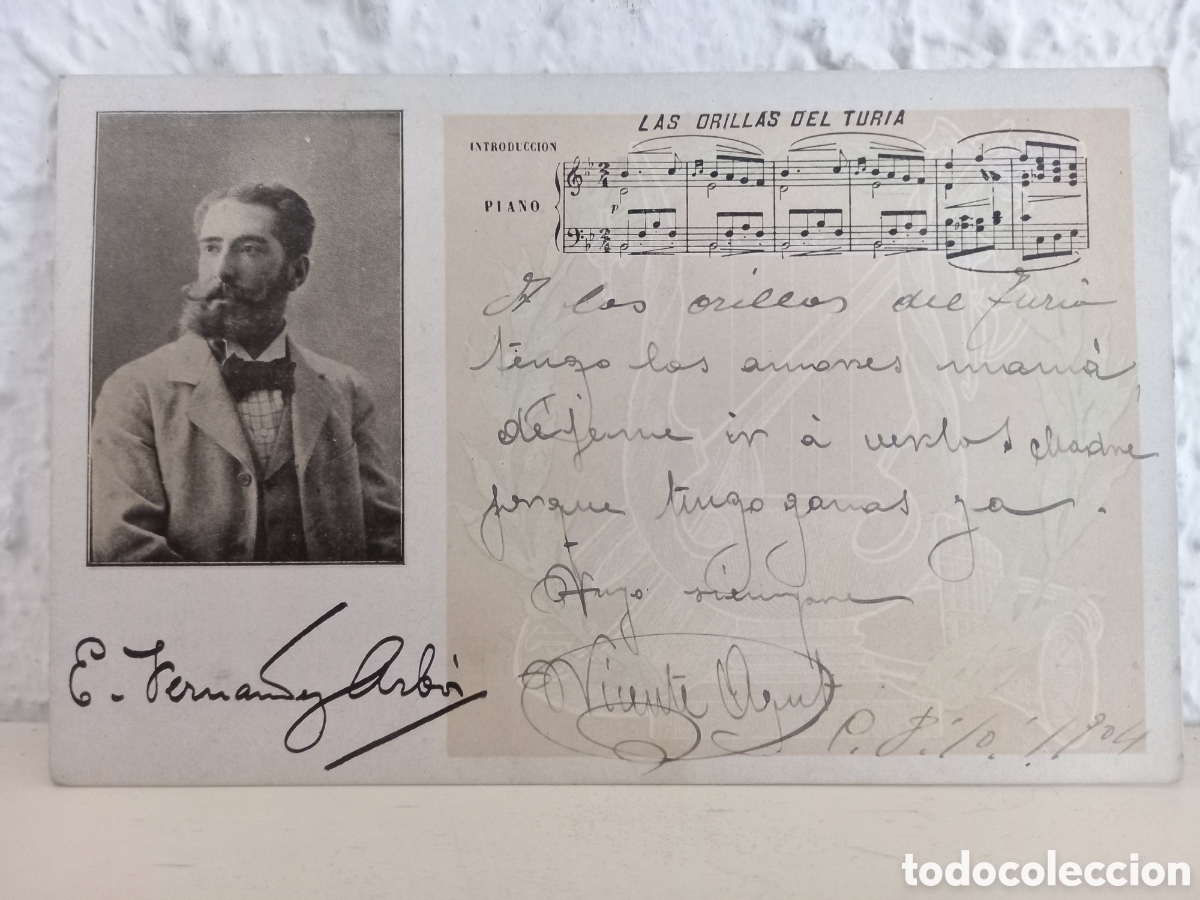 LAS ORILLAS DEL TURIA
INTRODUCCION
PIANO
p
A las orillas del Turia
tengo los amores mamá
déjeme ir á verlos Madre
porque tengo ganas ya.
siempre
Vicente
1904
E. Fernandez Arbós
todocoleccion